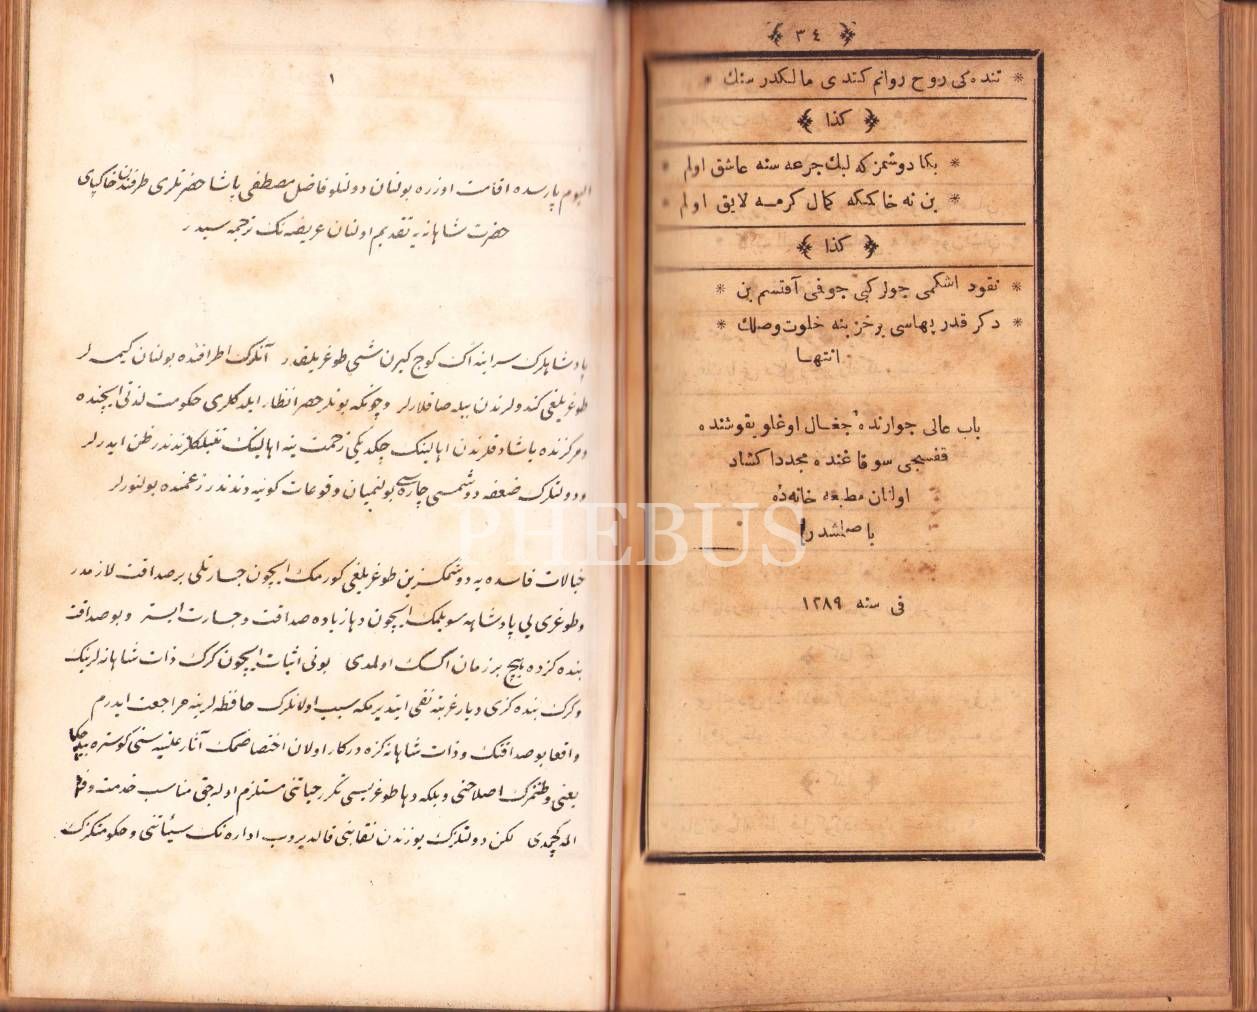 ﴾ ٣٤ ﴿
* تنده كی روح روانم كندی مالكدر سنك *
﴾ كذا ﴿
* بكا دوشمز كه لبك جرعه سنه عاشق اولم *
* بن نه خاكم كه كمال كرمه لايق اولم *
﴾ كذا ﴿
* نقود اشكمی جولر كبی جوفی آقتسم بن *
* دكر قدر بهاسی بر خزينه خلوت وصلك *
انتها
باب عالی جوارنده جغال اوغلو يقوشنده
قفسجی سوقاغنده مجددا كشاد
اولنان مطبعه خانه ده
باصلمشدر
فی سنه ١٢٨٩
١
اليوم پارسده اقامت اوزره بولنان دولتلو فاضل مصطفی پاشا حضرتلری طرفندن خاكپای
حضرت شاهانه يه تقديم اولنان عريضه نك ترجمه سيدر
پادشاهلرك سراينه اك كوج كيرن شی طوغريلقدر آنلرك اطرافنده بولنان كيمسه لر
طوغريلغی كندولرندن بيله صاقلارلر و چونكه بونلر حصر انظار ايلدكلری حكومت لذتی ايچنده
و مركزنده ياشادقلرندن اهالينك چكديكی زحمت ينه اهالينك تنبللكلرندندر ظن ايدرلر
و دولتلرك ضعفه دوشمسی چاره سی بولنميان وقوعات كونيه دندر زعمنده بولنورلر
خيالات فاسده يه دوشمكسزين طوغريلغی كورمك ايچون جسارتلی بر صداقت لازمدر
و طوغری يی پادشاهه سويلمك ايچون دها زياده صداقت و جسارت ايستر و بو صداقت
بنده كزده هيچ بر زمان اكسك اولمدی بونی اثبات ايچون كرك ذات شاهانه لرينك
و كرك بنده كزی ديار غربته نفی ايتديرمكه سبب اولانلرك حافظه لرينه مراجعت ايدرم
واقعا بو صداقتك و ذات شاهانه كزه دركار اولان اختصاصمك آثار علنيه سنی كوستره بيله جك
يعنی وطنمزك اصلاحنی و بلكه دها طوغريسی تكرر حياتنی مستلزم اوله جق مناسب خدمت
الله كچمدی لكن دولتكزك يوزندن نقابنی قالديروب اداره نك سيئاتنی و حكومتكزك
PHEBUS